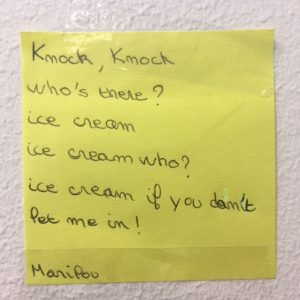 Knock, Knock
who's there?
ice cream
ice cream who?
ice cream if you don't
let me in!
Marilou